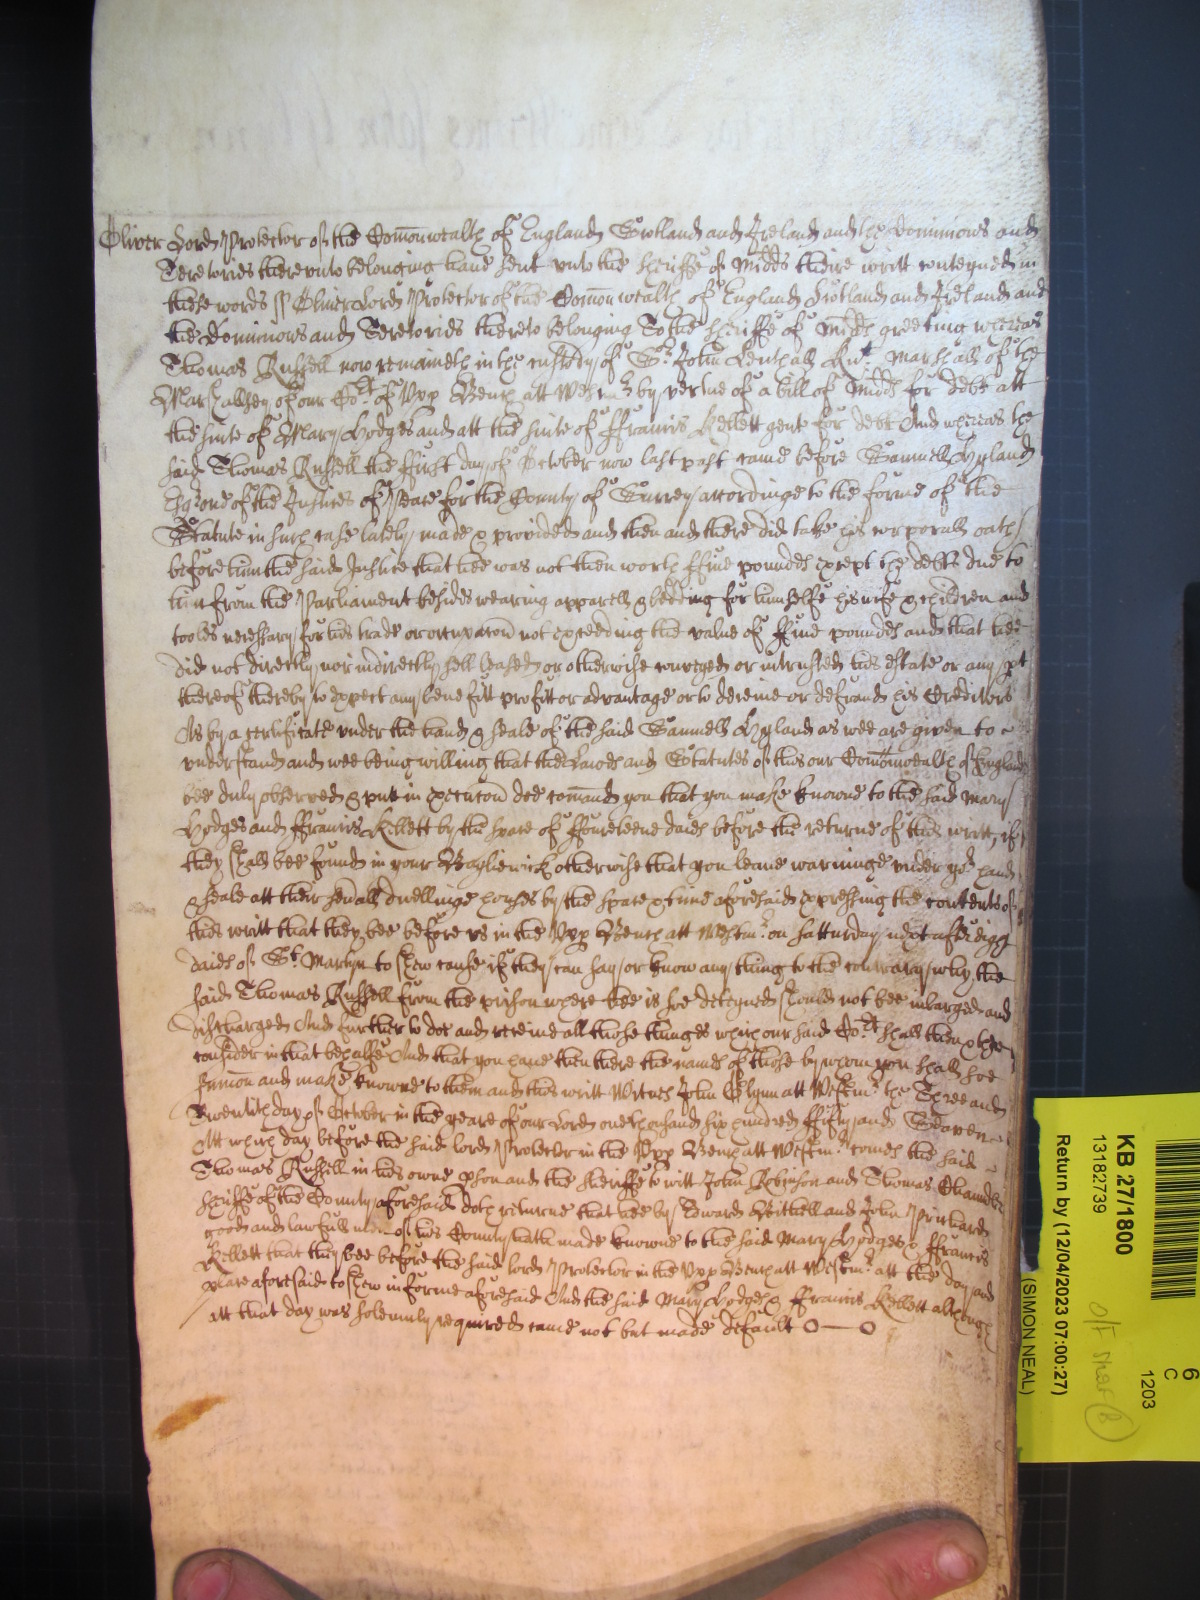 Oliver Lord Protector of the Com̄onwealth of England Scotland and Ireland and the Dominions and
Terretories thereunto belonging haue sent unto the Sheriffe of Midds theire writt conteyned in
these words ss Oliver Lord Protector of the Com̄onwealth of England Scotland and Ireland and
the Dominions and Terretories thereto belonging To the Sheriffe of Midds greeting whereas
Thomas Russell now remaineth in the custody of Sr John Lenthall Knt Marshall of the
Marshallsey of our Cort of Upp Bench att Westmr by vertue of a bill of Midds for debt att
the suite of Mary Hodges and att the suite of ffrancis Kellett gent for debt And whereas the
said Thomas Russell the ffirst day of October now last past came before Samuell Hyland
Esqr one of the Justices of Peace for the County of Surrey accordinge to the forme of the
Statute in such case lately made & provided and then and there did take his corporall oath
before him the said Justice that hee was not then worth ffiue pounds except the debts due to
him from the Parliament besides wearing apparell & bedding for himselfe his wife & children and
tooles necessary for his trade or occupacon not exceeding the value of ffiue pounds and that hee
did not directly nor indirectly sell leased or otherwise conveyed or intrusted his estate or any pt
thereof thereby to expect any benefitt profitt or advantage or to deceiue or defraud his Creditors
As by a certificate under the hand & seale of the said Samuell Hyland as wee are given to
understand and wee being willing that the Lawes and Statutes of this our Com̄onwealth of England
bee duly observed & put in execucon doe com̄and you that you make knowne to the said Mary
Hodges and ffrancis Kellett by the space of ffoureteene daies before the returne of this writt, if
they shall bee found in your Bayliewick otherwise that you leaue warninge under yor hand
& seale att their seuall dwellinge houses by the space & time aforesaid expressing the contents of
this writt that they bee before us in the Upp Bench att Westmr on Satturday next after eight
daies of St Martyn to shew cause if they can say or know any thing to the contrary why the
said Thomas Russell from the prison where hee is soe deteyned should not bee inlarged and
discharged And further to doe and receiue all those thinges which our said Cort shall then & there
consider in that behalfe And that you haue then there the names of those by whom you shall soe
sumon and make knowne to them and this writt Witnes John Glynn att Westmr the Three and
Twentith day of October in the yeare of our Lord one thousand six hundred ffifty and Seaven
Att which day before the said lord Protector in the Upp Bench att Westmr comes the said
Thomas Russell in his owne pson and the sheriffe to witt John Robinson and Thomas Chandler
Sheriffe of the County aforesaid doth returne that hee by Edward Bithell and John Prichard
good and lawfull men of his County hath made knowne to the said Mary Hodges & ffrancis
Kellett that they bee before the said lord Protector in the Upp Bench att Westmr att the day and
place aforesaid to shew in forme aforesaid And the said Mary Hodges & ffrancis Kellett although
att that day was solemnly required came not but made default
6
C
1203
KB 27/1800
13182739
Return by (12/04/2023 07:00:27)
(SIMON NEAL)